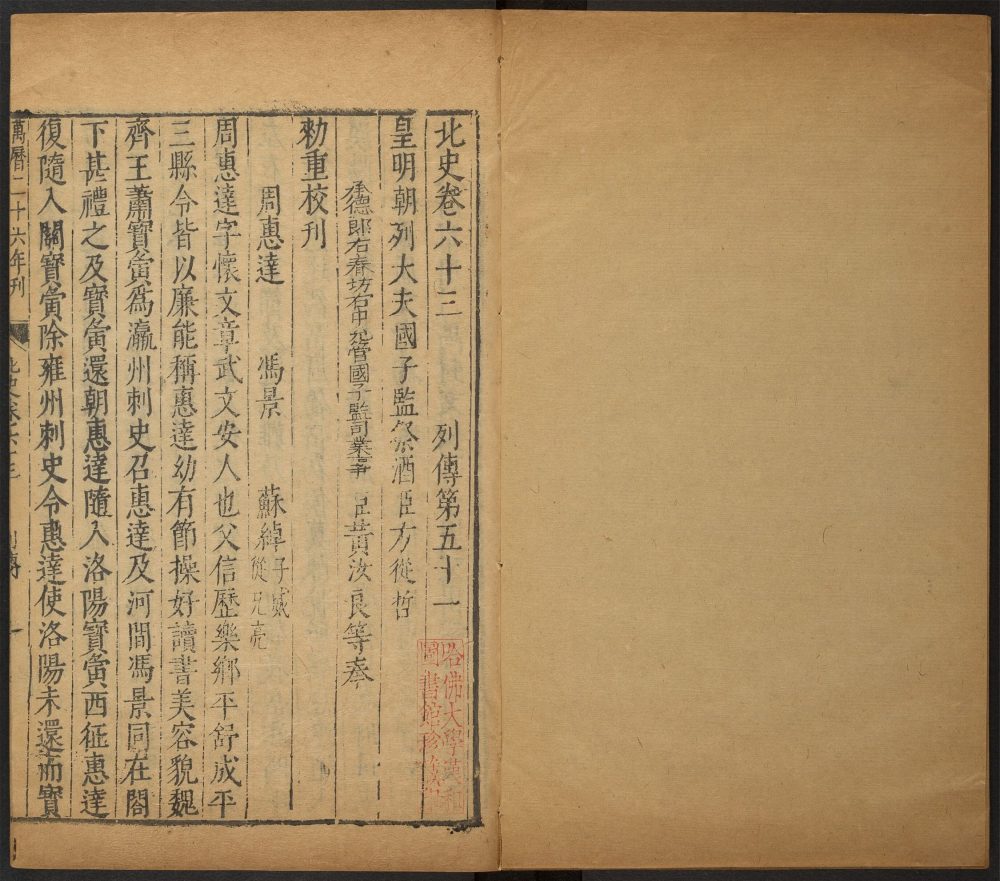 北史卷六十三 列傳第五十一
皇明朝列大夫國子監祭酒臣方從哲
承德郎右春坊右中允管國子監司業事臣黃汝良等奉
勑重校刊
周惠達 馮景 蘇綽子威 從兄亮
周惠達字懷文章武文安人也父信歷樂鄉平舒成平
三縣令皆以廉能稱惠達幼有節操好讀書美容貌魏
齊王蕭寶夤爲瀛州刺史召惠達及河間馮景同在閤
下甚禮之及寶夤還朝惠達隨入洛陽寶夤西征惠達
復隨入關寶夤除雍州刺史令惠達使洛陽未還而寶
萬曆二十六年刊 北史卷六十三 列傳 一
哈佛大學漢和
圖書館珍藏印